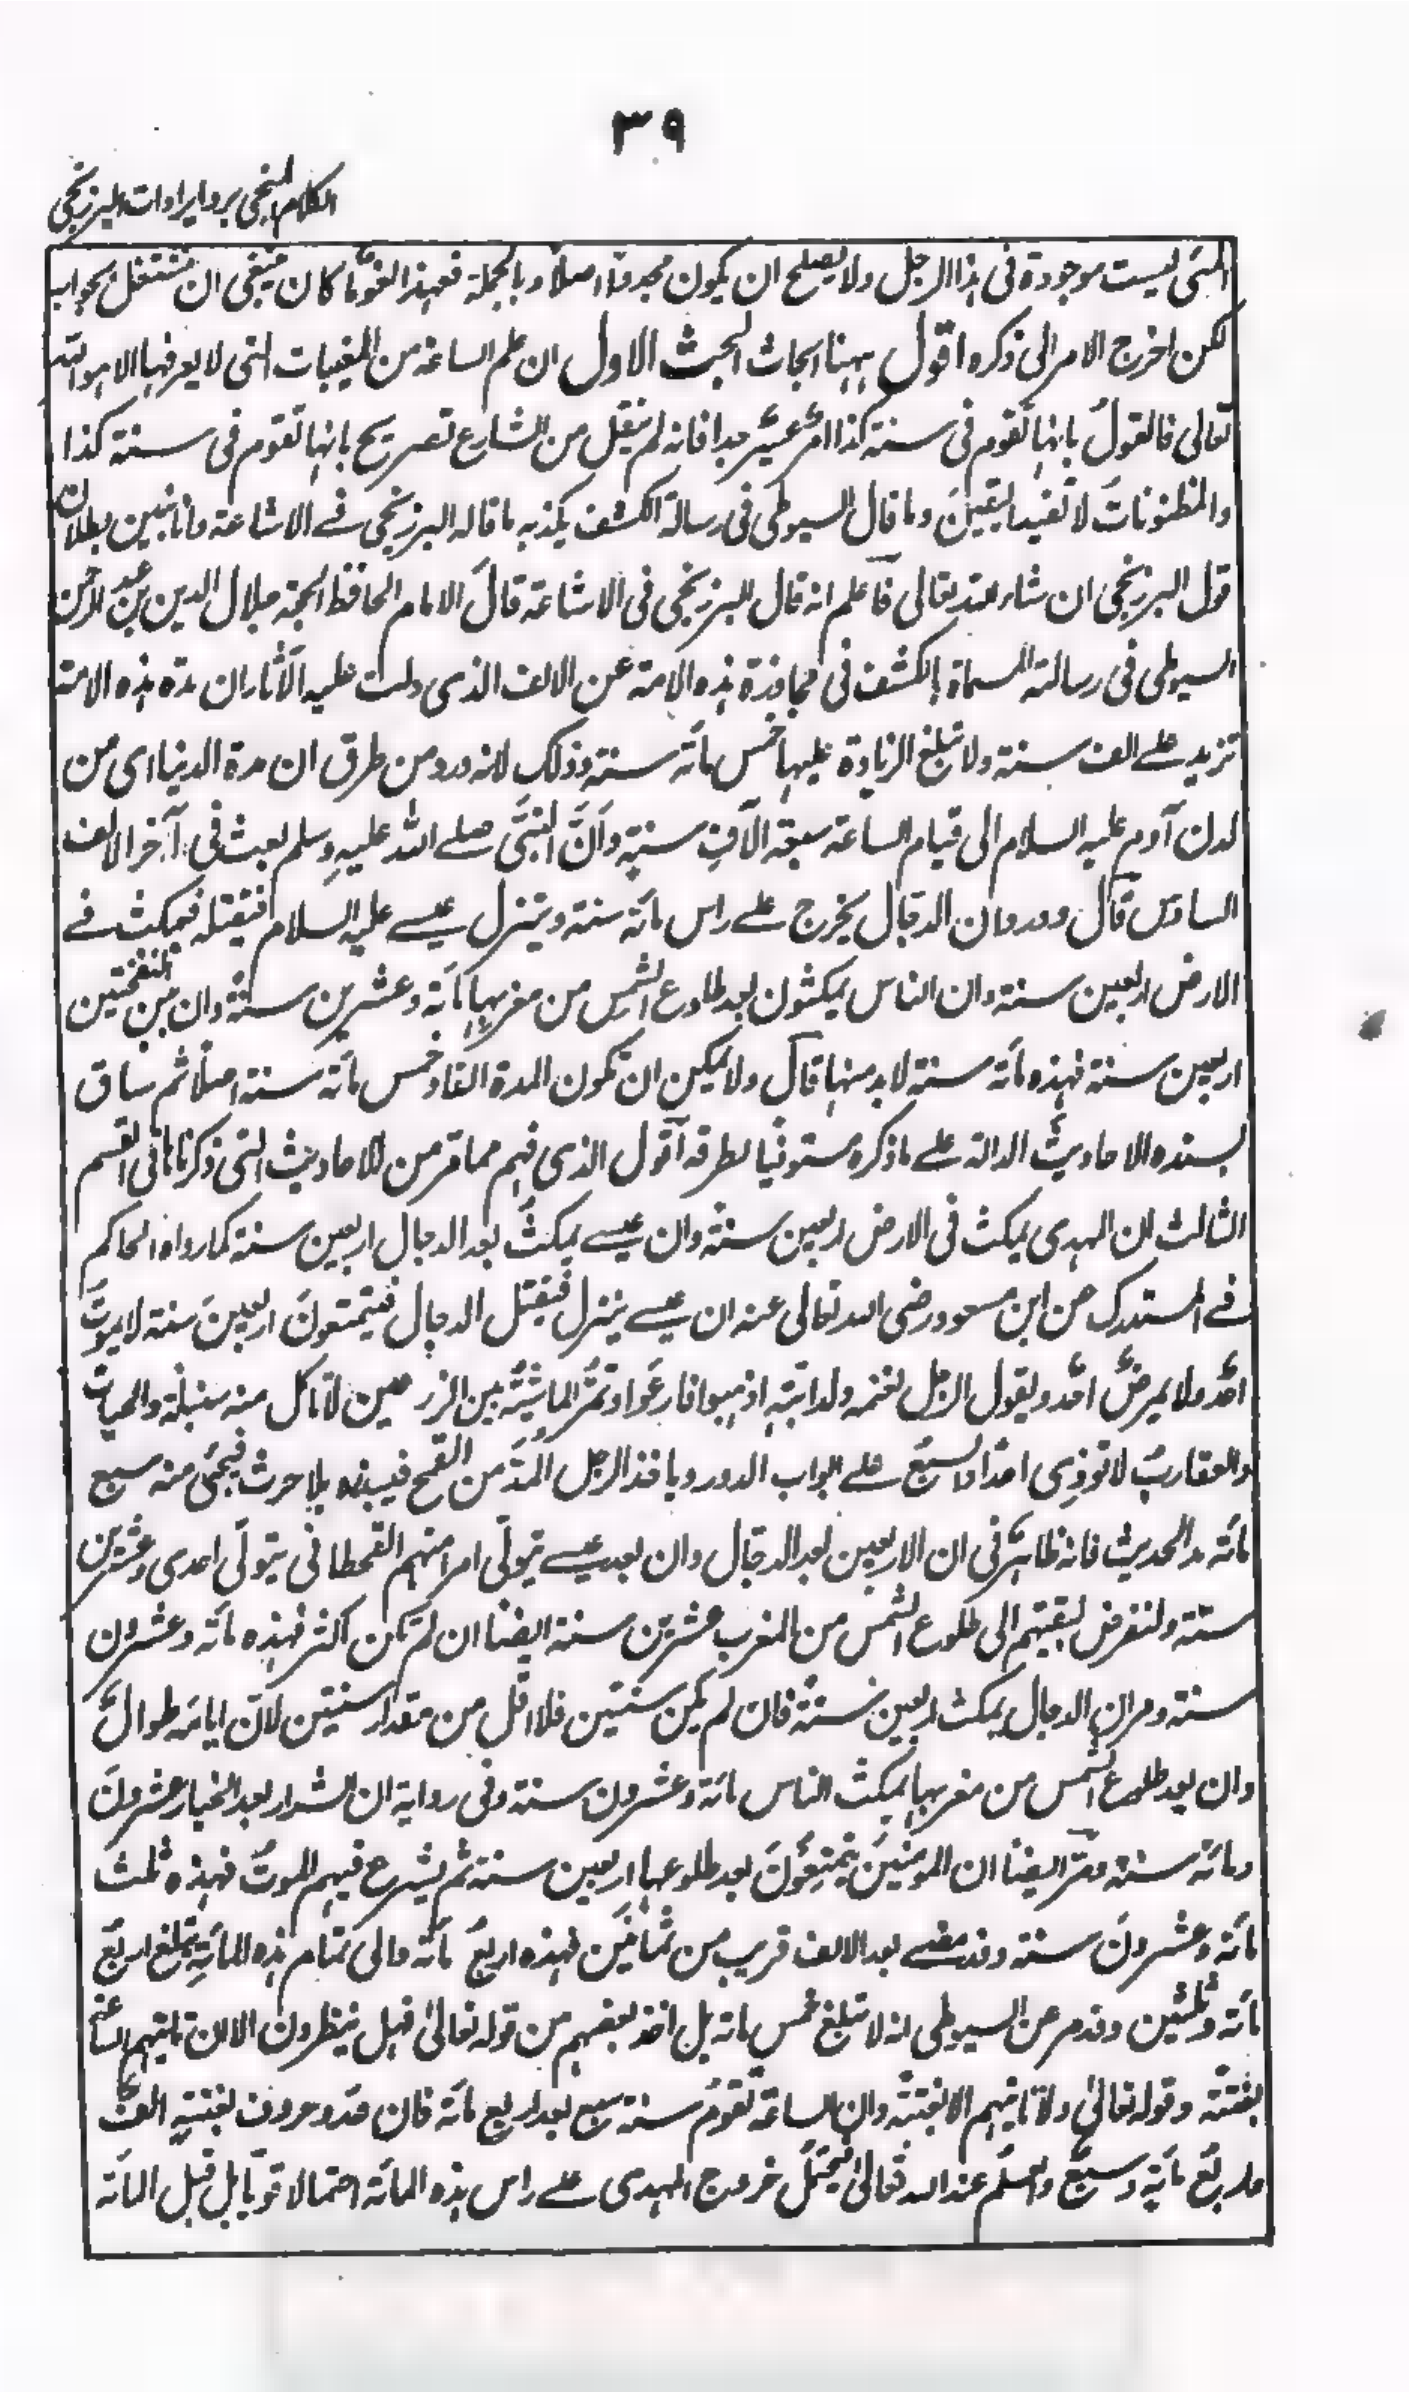 ٣٩
الكلام المنجى برد ايرادات البرزنجى
ليست موجودة فى هذا الرجل ولا يصلح ان يكون مجددا اصلا وبالجملة فهذا لغو ما كان ينبغى ان نشتغل بجوابه
لكن اخرج الامر الى ذكره اقول ههنا ابحاث البحث الاول ان علم الساعة من المغيبات التى لا يعرفها الا هو الله
تعالى فالقول بانها تقوم فى سنة كذا امر عسير جدا فانه لم ينقل من الشارع تصريح بانها تقوم فى سنة كذا
والمظنونات لا تفيد اليقين وما قال السيوطى فى رسالة الكشف يكذبه ما قاله البرزنجى فے الاشاعة وانا نبين بطلان
قول البرزنجى ان شاء الله تعالى فاعلم انه قال البرزنجى فى الاشاعة قال الامام الحافظ الحجة جلال الدين بن عبد الرحمن
السيوطى فى رسالته المسماة بالكشف فى مجاوزة هذه الامة عن الالف الذى دلت عليه الآثار ان مدة هذه الامة
تزيد علے الف سنة ولا تبلغ الزيادة عليها خمس مائة سنة وذلك لانه ورد من طرق ان مدة الدنيا اى من
لدن آدم عليه السلام الى قيام الساعة سبعة آلاف سنة وأن النبى صلے الله عليه وسلم بعث فى آخر الالف
السادس قال وورد ان الدجال يخرج علے راس مائة سنة وينزل عيسے عليه السلام فيقتله فيمكث فے
الارض اربعين سنة وان الناس يمكثون بعد طلوع الشمس من مغربها مائة وعشرين سنة وان بين النفختين
اربعين سنة فهذه مائة سنة لابد منها قال ولا يمكن ان تكون المدة الفا وخمس مائة سنة اصلا ثم ساق
بسنده الاحاديث الدالة علے ما ذكره مستوفيا لطرقه اقول الذى فهم مما مر من الاحاديث التى ذكرناها فى القسم
الثالث ان المهدى يمكث فى الارض اربعين سنة وان عيسے يمكث بعد الدجال اربعين سنة كما رواه الحاكم
فے المستدرك عن ابن مسعود رضى الله تعالى عنه ان عيسے ينزل فيقتل الدجال فيتمتعون اربعين سنة لا يموت
احد ولا يمرض احد ويقول الرجل لغنمه ولدابته اذهبوا فارعوا وتمر الماشية بين الزرعين لا تاكل منه سنبلة والحيات
والعقارب لا تؤذى احدا والسبع علے ابواب الدور وياخذ الرجل المد من القمح فيبذره بلا حرث فيجئ منه سبع
مائة مد الحديث فانه ظاهر فى ان الاربعين بعد الدجال وان بعد عيسے يتولى امرا منهم القحطانى يتولى احدى وعشرين
سنة ولنفرض لبقيتهم الى طلوع الشمس من المغرب عشرين سنة ايضا ان لم تكن اكثر فهذه مائة وعشرون
سنة ومر ان الدجال يمكث اربعين سنة فان لم يكن سنتين فلا اقل من مقدار سنتين لان ايامه طوال
وان بعد طلوع الشمس من مغربها يمكث الناس مائة وعشرون سنة وفى رواية ان الشرار بعد الخيار عشرون
ومائة سنة ومر ايضا ان المؤمنين يتمتعون بعد طلوعها اربعين سنة ثم يشرع فيهم الموت فهذه ثلث
مائة وعشرون سنة وقد مضے بعد الالف قريب من ثمانين فهذه اربع مائة والى تمام هذه المائة يبلغ اربع
مائة وثلثين وقد مر عن السيوطى انه لا تبلغ خمس مائة بل اخذ بعضهم من قوله تعالى فهل ينظرون الا ان تاتيهم الساعة
بغتة وقوله تعالى ولا تاتيهم الا بغتة وان الساعة تقوم سنة سبع بعد اربع مائة فان عدد حروف بغتة الف
واربع مائة وسبع والعلم عند الله تعالى فيحتمل خروج المهدى علے راس هذه المائة احتمالا قويا بل قبل المائة